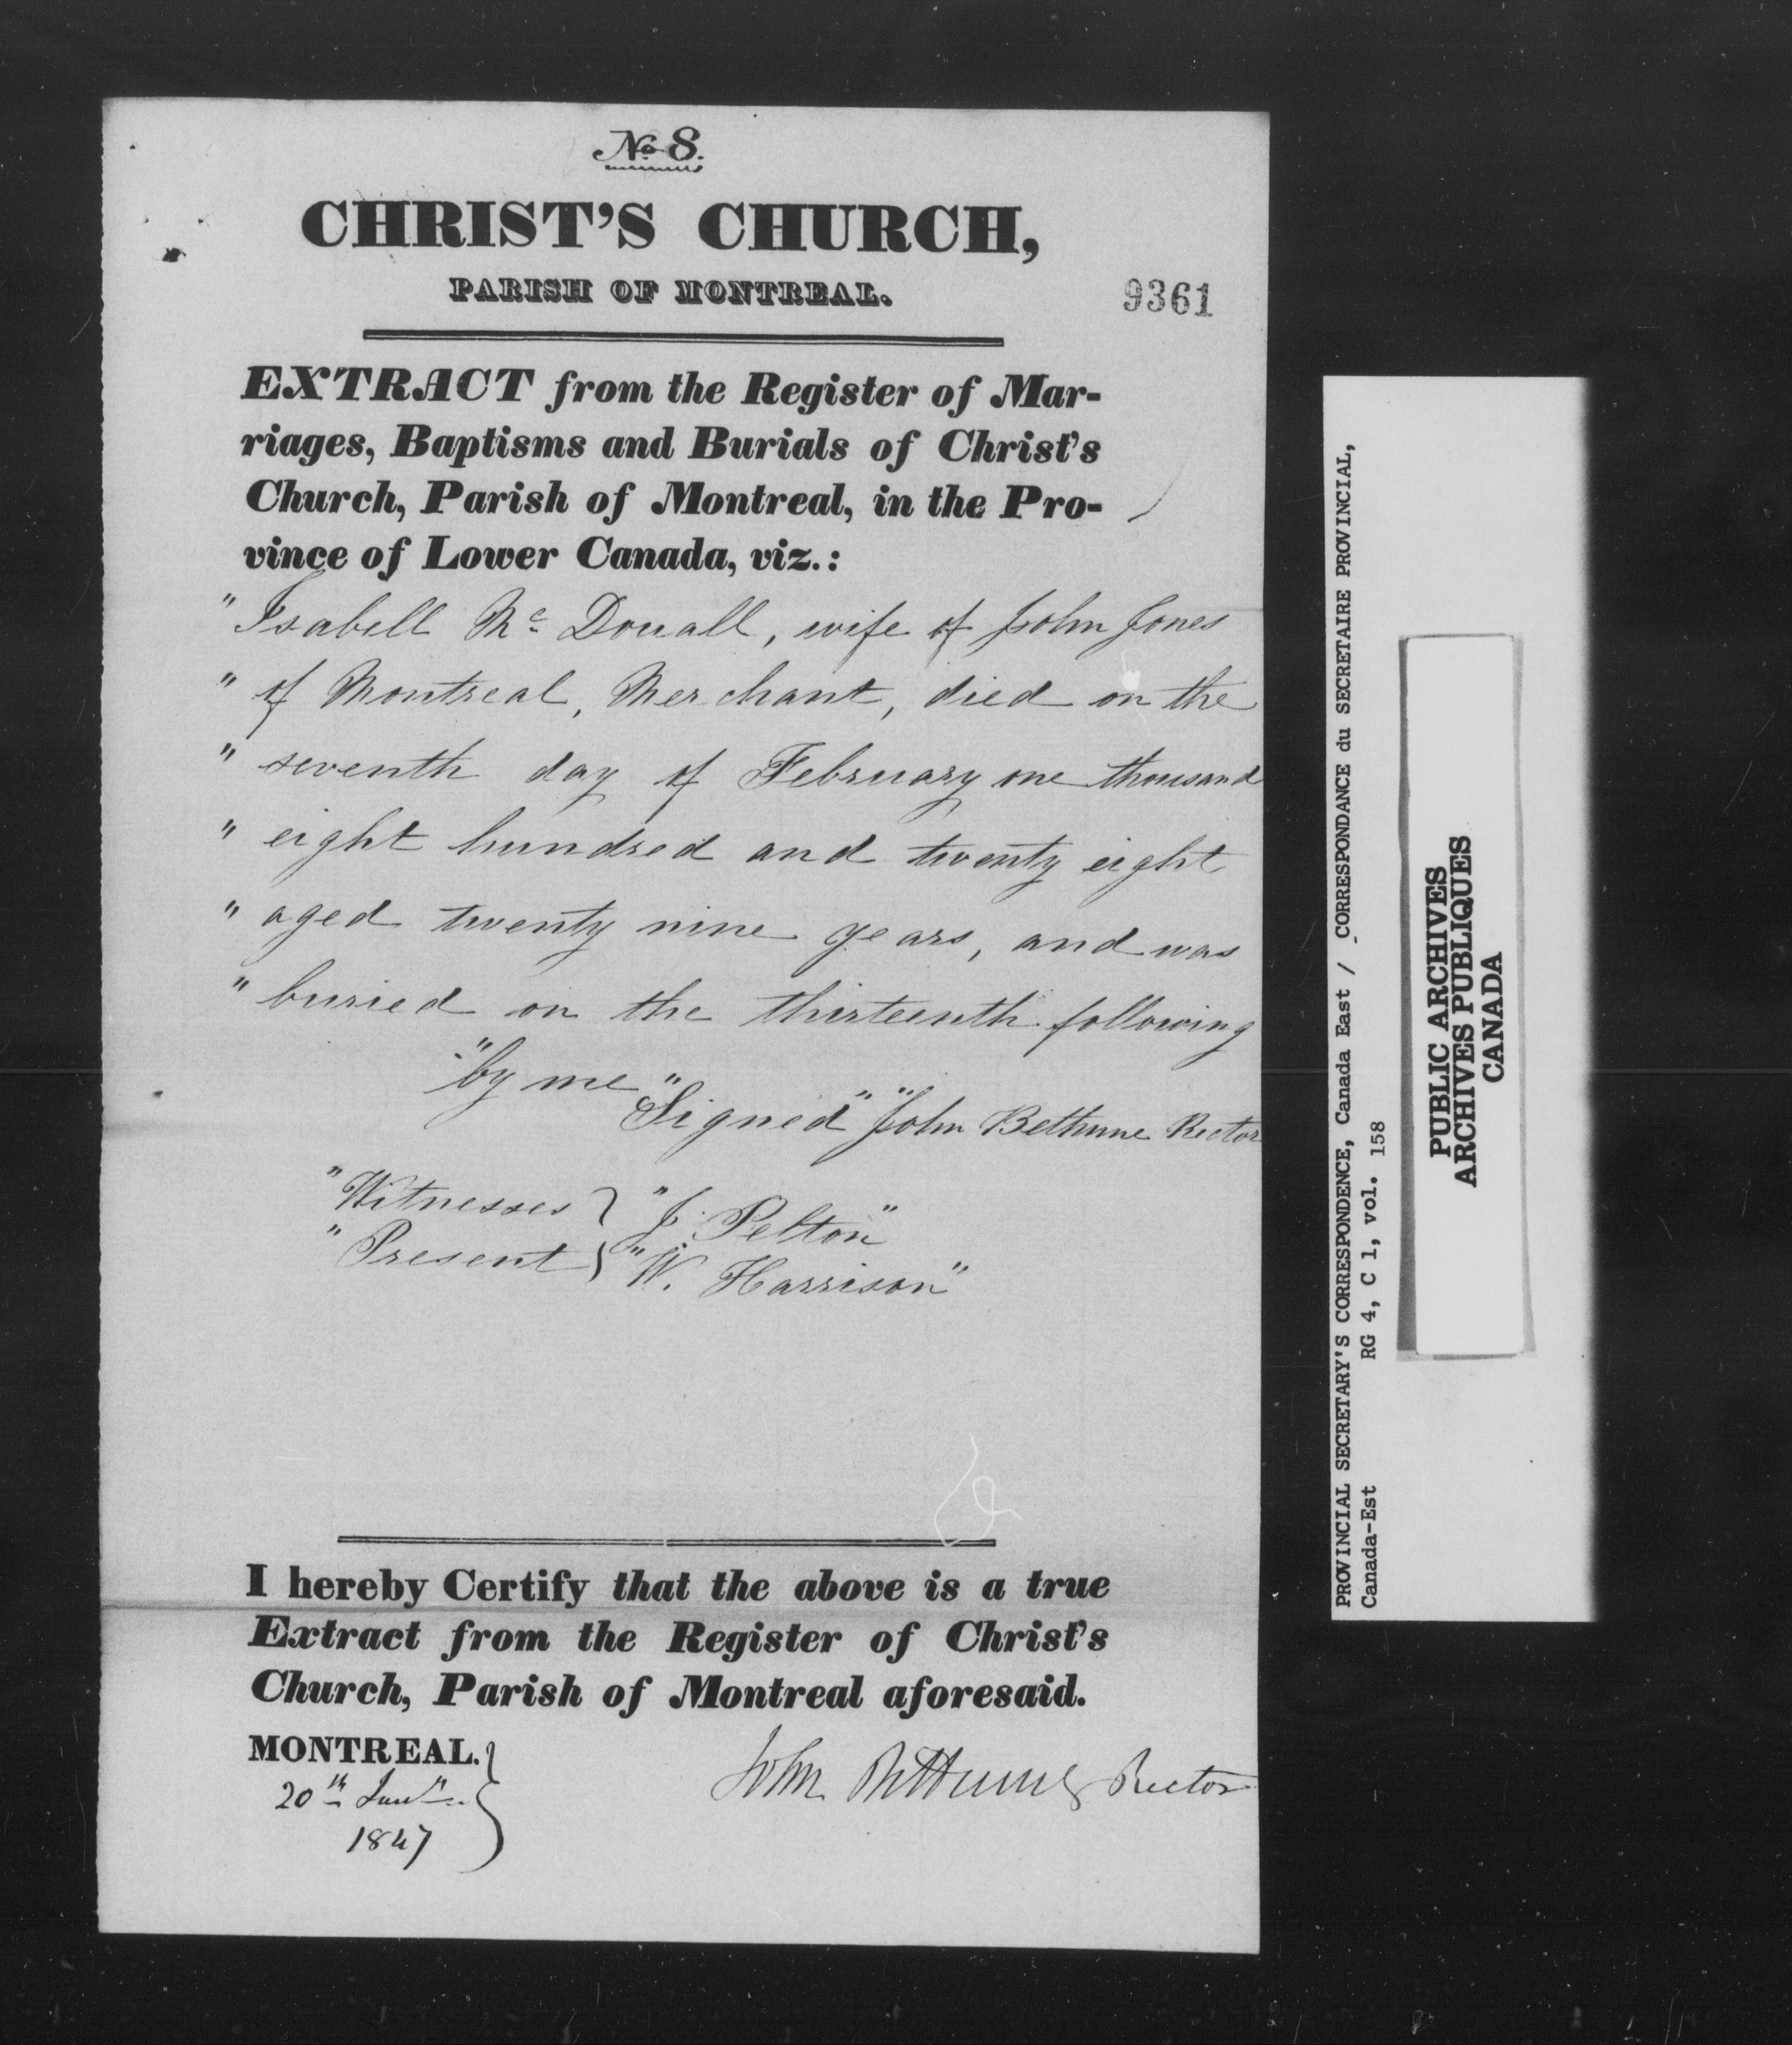 No 8.
CHRIST'S CHURCH,
PARISH OF MONTREAL.
9361
EXTRACT from the Register of Mar-
riages, Baptisms and Burials of Christ's
Church, Parish of Montreal, in the Pro-
vince of Lower Canada, viz.:
" Isabell Mc Douall, wife of John Jones
" of Montreal, Merchant, died on the
" seventh day of February one thousand
" eight hundred and twenty eight
" aged twenty nine years, and was
" buried on the thirteenth following
"by me
"Signed" "John Bethune Rector
"Witnesses } "J. Pelton"
"Present } "W. Harrison"
I hereby Certify that the above is a true
Extract from the Register of Christ's
Church, Parish of Montreal aforesaid.
MONTREAL. }
20th Jany
1847
John Bethune Rector
PROVINCIAL SECRETARY'S CORRESPONDENCE, Canada East / CORRESPONDANCE du SECRETAIRE PROVINCIAL,
Canada-Est RG 4, C 1, vol. 158
PUBLIC ARCHIVES
ARCHIVES PUBLIQUES
CANADA